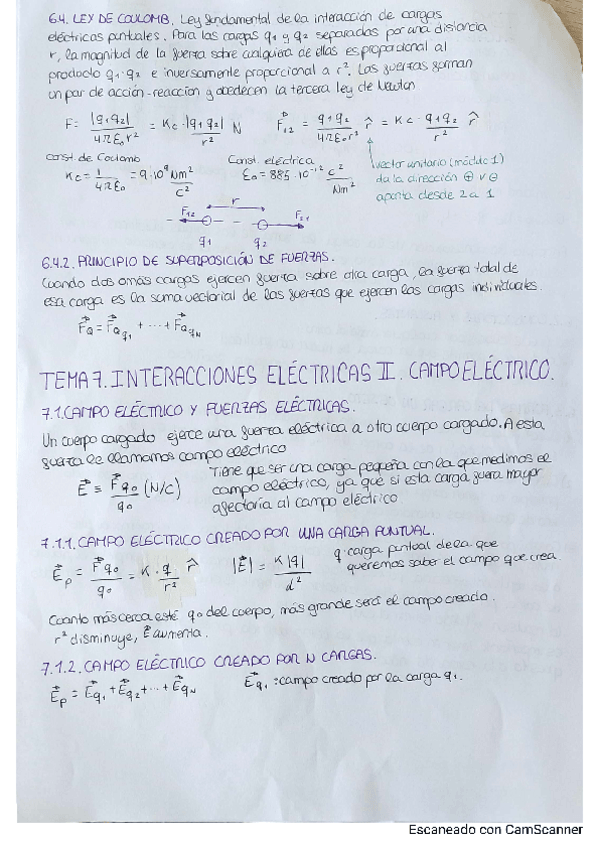 6.4. LEY DE COULOMB. Ley fundamental de la interacción de cargas
eléctricas puntuales. Para las cargas q1 y q2 separadas por una distancia
r, la magnitud de la fuerza sobre cualquiera de ellas es proporcional al
producto q1·q2 e inversamente proporcional a r². Las fuerzas forman
un par de acción-reacción y obedecen la tercera ley de Newton
F = |q1q2| / 4πε0r² = Kc · |q1q2| / r² N
F⃗12 = q1q2 / 4πε0r² r̂ = Kc · q1q2 / r² r̂
Const de Coulomb
Kc = 1 / 4πε0 = 9·10⁹ Nm² / c²
Const. eléctrica
ε0 = 8'85·10⁻¹² c² / Nm²
vector unitario (módulo 1)
da la dirección ⊕ v ⊖
aporta desde 2 a 1
r
F12
F21
q1
q2
6.4.2. PRINCIPIO DE SUPERPOSICIÓN DE FUERZAS.
Cuando dos o más cargas ejercen fuerza sobre otra carga, la fuerza total de
esa carga es la suma vectorial de las fuerzas que ejercen las cargas individuales.
F⃗Q = F⃗Qq1 + ... + F⃗QqN
TEMA 7. INTERACCIONES ELÉCTRICAS II. CAMPO ELÉCTRICO.
7.1. CAMPO ELÉCTRICO Y FUERZAS ELÉCTRICAS.
Un cuerpo cargado ejerce una fuerza eléctrica a otro cuerpo cargado. A esta
fuerza le llamamos campo eléctrico
E⃗ ≡ F⃗q0 / q0 (N/C)
Tiene que ser una carga pequeña con la que medimos el
campo eléctrico, ya que si esta carga fuera mayor
afectaría al campo eléctrico
7.1.1. CAMPO ELÉCTRICO CREADO POR UNA CARGA PUNTUAL.
E⃗p = F⃗q0 / q0 = K · q / r² r̂
|E⃗| = K|q| / d²
q: carga puntual de la que
queremos saber el campo que crea
Cuanto más cerca esté q0 del cuerpo, más grande será el campo creado.
r² disminuye, E⃗ aumenta.
7.1.2. CAMPO ELÉCTRICO CREADO POR N CARGAS.
E⃗p = E⃗q1 + E⃗q2 + ... + E⃗qN
E⃗q1: campo creado por la carga q1.
Escaneado con CamScanner